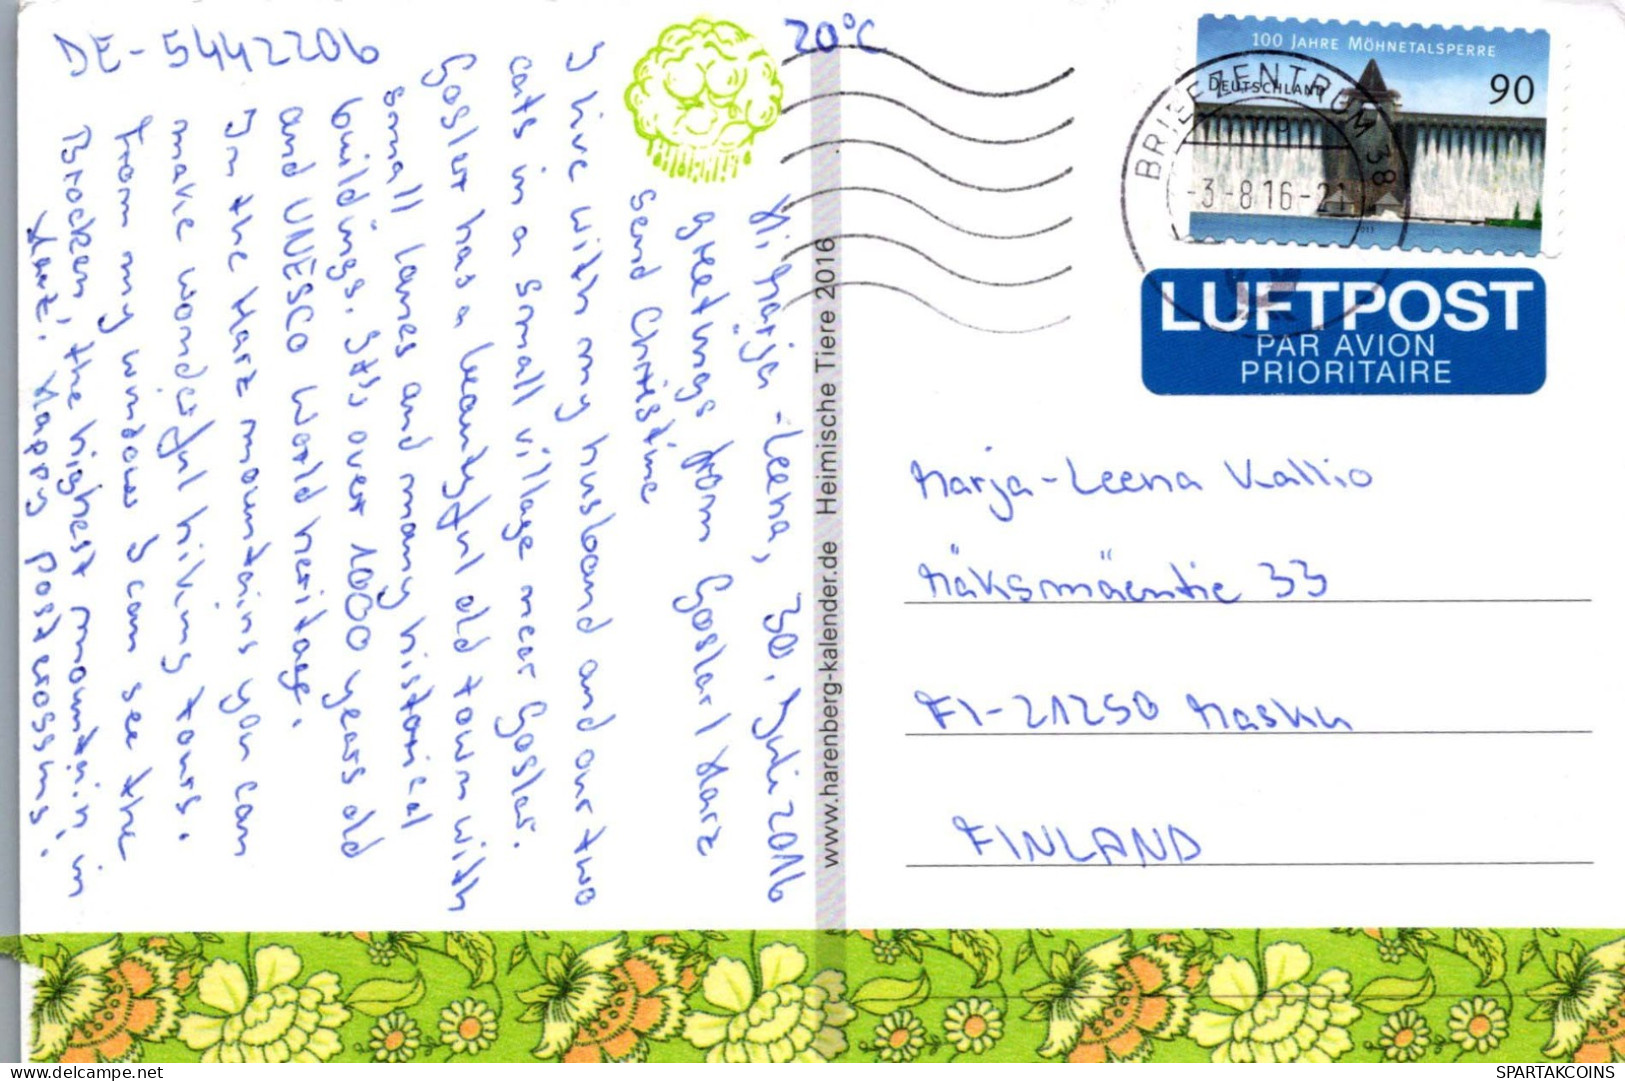 DE-5442206
20°C
Hi Marja-Leena, 30. Juli 2016
greetings from Goslar / Harz
send Christine
I live with my husband and our two
cats in a small village near Goslar.
Goslar has a beautyful old town with
small lanes and many historical
buildings. It's over 1000 years old
and UNESCO World heritage.
In the Harz mountains you can
make wonderful hiking tours.
From my window I can see the
Brocken, the highest mountain in
Harz. Happy postcrossing.
www.harenberg-kalender.de Heimische Tiere 2016
100 JAHRE MÖHNETALSPERRE
DEUTSCHLAND
90
BRIEFZENTRUM 38
-3.-8.16-21
LUFTPOST
PAR AVION
PRIORITAIRE
Marja-Leena Kallio
Mäksmäentie 33
FI-21250 Masku
FINLAND
SPARTAKCOINS
www.delcampe.net